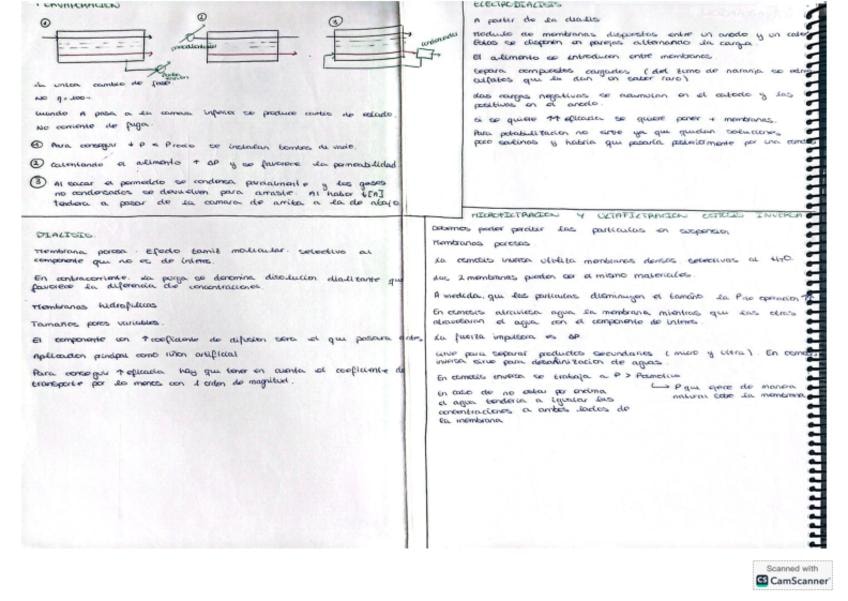 PERVAPORACIÓN
① ② ③
precalentador
condensador
la unica cambio de fase.
No η = 100%
cuando A pasa a la camara inferior se produce cambio de estado.
No corriente de fuga.
① Para conseguir ↓ P se instalan bombas de vacio.
② Calentando el alimento ↑ ΔP y se favorece la permeabilidad.
③ Al sacar el permeado se condensa parcialmente y los gases
no condensados se devuelven para arrastre. Al haber ↓[A]
tendera a pasar de la camara de arriba a la de abajo
DIALISIS.
Membrana porosa. Efecto tamiz molecular. selectivo al
componente que no es de interes.
En contracorriente. La purga se denomina disolucion dializante que
favorece la diferencia de concentraciones.
Membranas hidrofilicas
Tamaños poros variables.
El componente con ↑ coeficiente de difusion sera el que pasara antes.
Aplicacion principal como riñon artificial
Para conseguir ↑ eficacia hay que tener en cuenta el coeficiente de
transporte por lo menos con 1 orden de magnitud.
ELECTRODIALISIS
A partir de la dialisis
Modulo de membranas dispuestas entre un anodo y un
Estas se disponen en parejas alternando la carga.
El alimento se introducen entre membranas.
Separa compuestos cargados (del zumo de naranja se
sulfatos que le dan un sabor raro)
Las cargas negativas se acumulan en el catodo y las
positivas en el anodo.
Si se quiere ↑↑ eficacia se quiere poner + membranas.
Para potabilizacion no sirve ya que quedan soluciones
poco salinas y habria que pasarla posteriormente por una
MICROFILTRACION Y ULTRAFILTRACION OSMOSIS INVERSA
Debemos poder percibir las particulas en suspension
Membranas porosas
La osmosis inversa utiliza membranas densas selectivas al H₂O.
Las 2 membranas pueden ser el mismo materiales.
A medida que las particulas disminuyen el tamaño la P de operacion ↑
En osmosis atraviesa agua la membrana mientras que las otras
atravesaran el agua con el componente de interes.
La fuerza impulsora es ΔP.
sirve para separar productos secundarios (micro y ultra). En osmosis
inversa sirve para desalinizacion de aguas.
En osmosis inversa se trabaja a P > Posmotica
↳ P que ejerce de manera
natural sobre la membrana
En caso de no estar por encima
el agua tenderia a igualar las
concentraciones a ambos lados de
la membrana
Scanned with
CS CamScanner